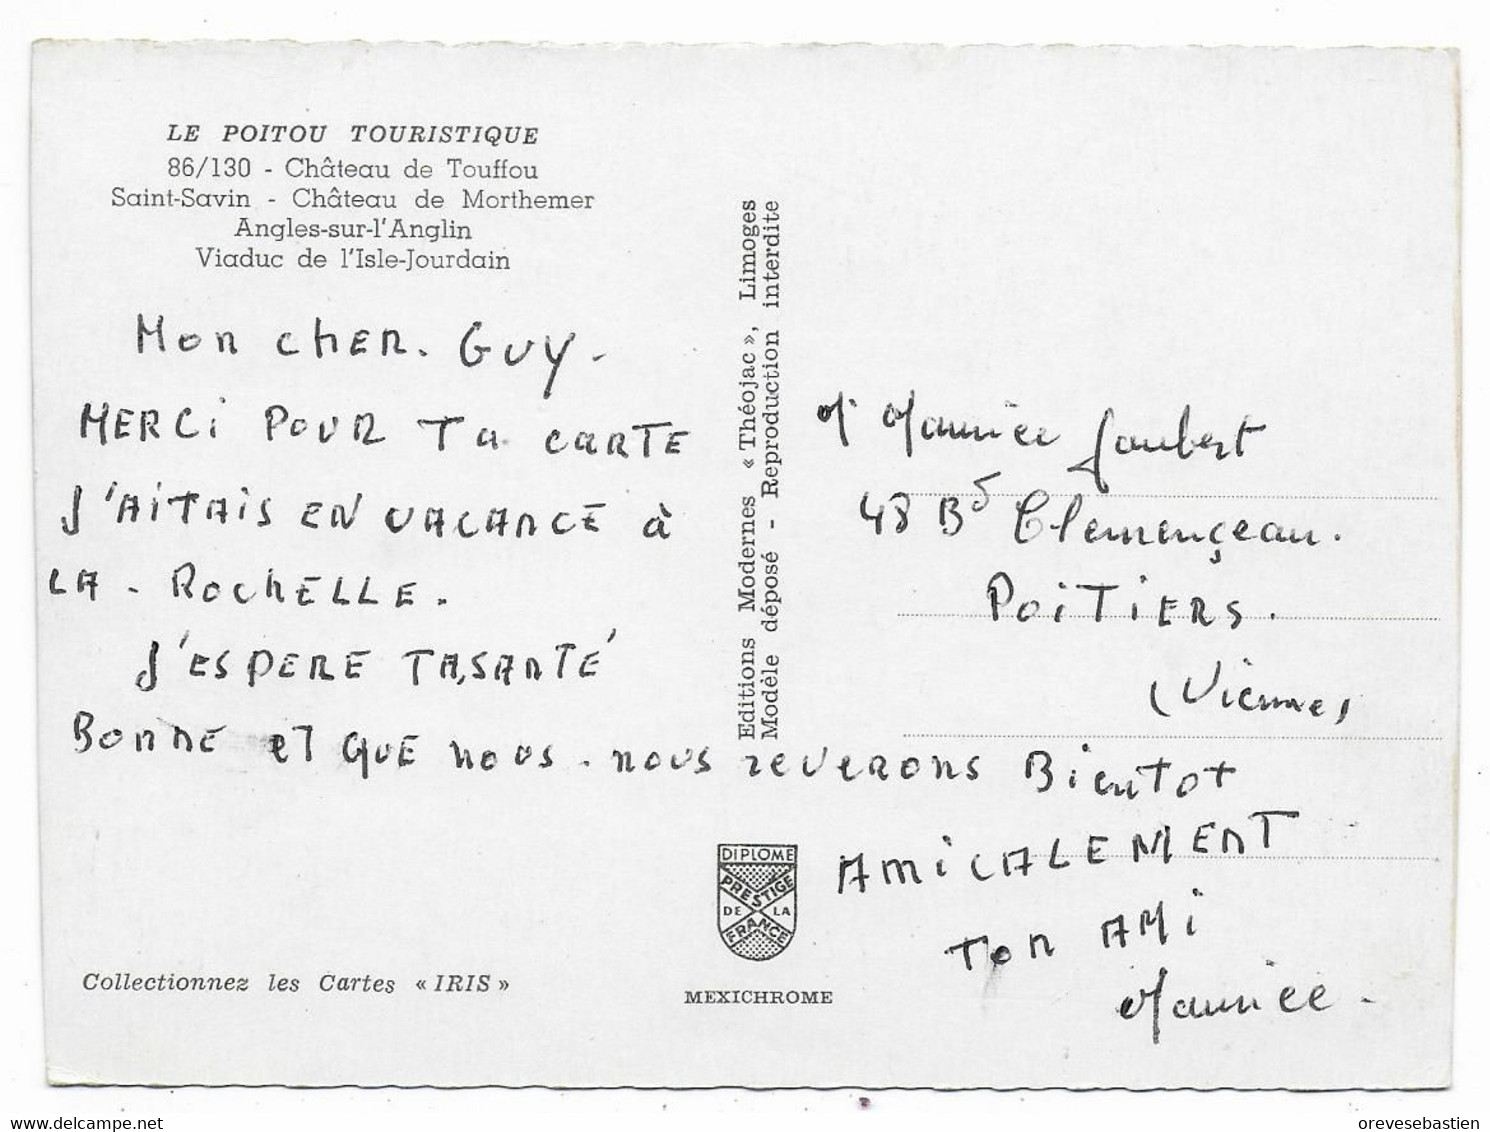 LE POITOU TOURISTIQUE
86/130 - Château de Touffou
Saint-Savin - Château de Morthemer
Angles-sur-l'Anglin
Viaduc de l'Isle-Jourdain
Mon cher. Guy -
MERCi POUR Ta cARTE
J'AiTAiS EN VACANCE à
LA - ROCHELLE.
J'ESPERE TA SANTÉ
BONNE ET QUE nous. nous reverons Bientot
AMiCALEMENT
Ton AMi
Maurice -
Editions Modernes « Théojac », Limoges
Modèle déposé - Reproduction interdite
Mr Maurice Joubert
48 Bd Clemençeau.
POiTiERS.
(Vienne)
DIPLOME
PRESTIGE
DE LA
FRANCE
MEXICHROME
Collectionnez les Cartes « IRIS »
delcampe.net
orevesebastien